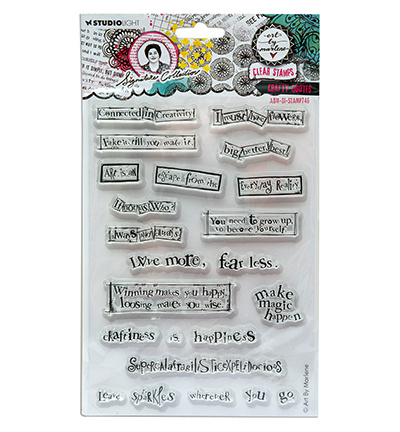 STUDIOLIGHT
Signature Collection
art by marlene
CLEAR STAMPS
CRAFTY QUOTES
ABM-SI-STAMP746
Connected in Creativity!
I must have flowers,
Fake it till you make it.
big writer best!
Art is an
escape from the
Everyday Reality
You need to grow up,
to become yourself.
Love more, fear less.
Winning makes you happy,
loosing makes you wise.
make
magic
happen
craftiness is happiness
Leave sparkles wherever you go
© Art By Marlene